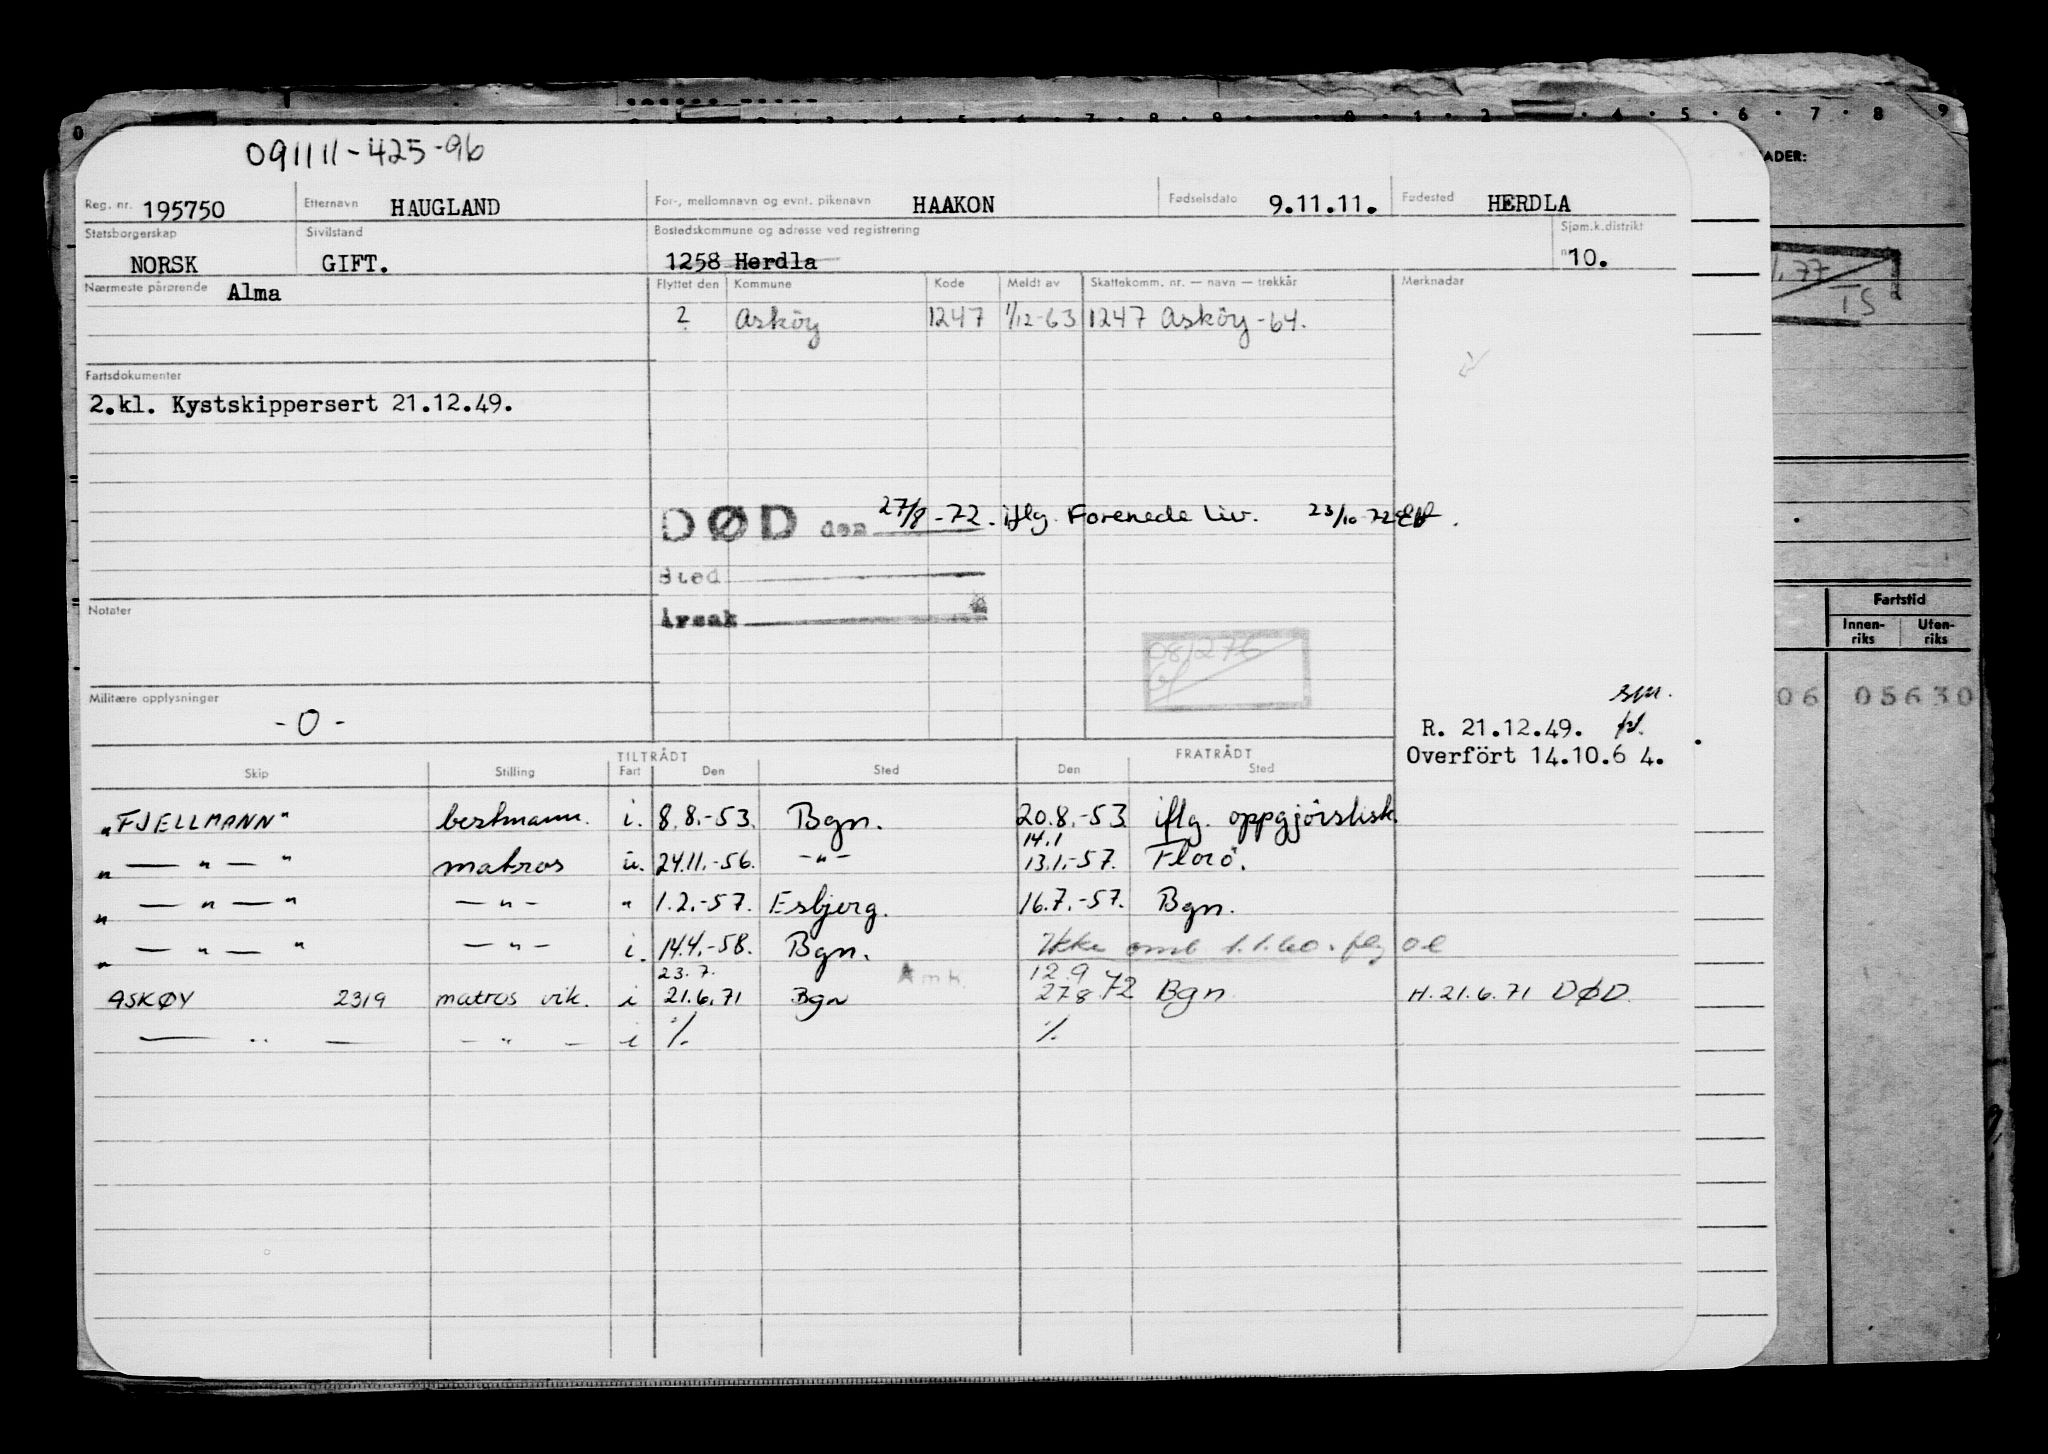 0 2 3 4 5 6 7 8 9 0 1 2 4 5 6 7 8 9
091111-425-96
Reg. nr. 195750 Etternavn HAUGLAND For-, mellomnavn og evnt. pikenavn HAAKON Fødselsdato 9.11.11. Fødested HERDLA
Statsborgerskap NORSK Sivilstand GIFT. Bostedskommune og adresse ved registrering 1258 Herdla Sjøm.k.distrikt 10.
Nærmeste pårørende Alma Flyttet den Kommune Kode Meldt av Skattekomm. nr. — navn — trekkår Merknadar
? Asköy 1247 1/12-63 1247 Asköy -64.
Fartsdokumenter
2.kl. Kystskippersert 21.12.49.
DØD den 27/8 -72. iflg. Forenede Liv. 23/10-72
Sted
Årsak
Notater
081276
Militære opplysninger
-0-
R. 21.12.49.
Overfört 14.10.6 4.
TILTRÅDT FRATRÅDT
Skip Stilling Fart Den Sted Den Sted
"FJELLMANN" bestmann. i. 8.8.-53. Bgn. 20.8.-53 iflg. oppgjörslisk.
14.1
" — " — " matros u. 24.11.-56. -"- 13.1.-57. Florö.
" — " — " — " - " 1.2.-57. Esbjerg. 16.7.-57. Bgn.
" — " — " — " - i. 14.4.-58. Bgn. Ikke omb 1.1.60.
23.7. 12.9
ASKØY 2319 matros vik. i 21.6.71 Bgn 27.8 72 Bgn H. 21.6.71 DØD.
— " — - " - i ./. ./.
ADER:
1.77
TS
Fartstid
Innen-riks Uten-riks
06 05630